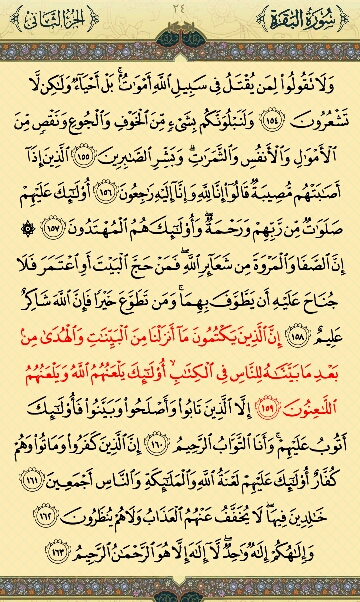 سُورَةُ البَقَرَة ٢٤ الجُزءُ الثَّانِي
وَلَا تَقُولُوا۟ لِمَن يُقْتَلُ فِى سَبِيلِ ٱللَّهِ أَمْوَٰتٌۢ ۚ بَلْ أَحْيَآءٌ وَلَٰكِن لَّا
تَشْعُرُونَ ١٥٤ وَلَنَبْلُوَنَّكُم بِشَىْءٍ مِّنَ ٱلْخَوْفِ وَٱلْجُوعِ وَنَقْصٍ مِّنَ
ٱلْأَمْوَٰلِ وَٱلْأَنفُسِ وَٱلثَّمَرَٰتِ ۗ وَبَشِّرِ ٱلصَّٰبِرِينَ ١٥٥ ٱلَّذِينَ إِذَآ
أَصَٰبَتْهُم مُّصِيبَةٌ قَالُوٓا۟ إِنَّا لِلَّهِ وَإِنَّآ إِلَيْهِ رَٰجِعُونَ ١٥٦ أُو۟لَٰٓئِكَ عَلَيْهِمْ
صَلَوَٰتٌ مِّن رَّبِّهِمْ وَرَحْمَةٌ ۖ وَأُو۟لَٰٓئِكَ هُمُ ٱلْمُهْتَدُونَ ١٥٧ ۞
إِنَّ ٱلصَّفَا وَٱلْمَرْوَةَ مِن شَعَآئِرِ ٱللَّهِ ۖ فَمَنْ حَجَّ ٱلْبَيْتَ أَوِ ٱعْتَمَرَ فَلَا
جُنَاحَ عَلَيْهِ أَن يَطَّوَّفَ بِهِمَا ۚ وَمَن تَطَوَّعَ خَيْرًا فَإِنَّ ٱللَّهَ شَاكِرٌ
عَلِيمٌ ١٥٨ إِنَّ ٱلَّذِينَ يَكْتُمُونَ مَآ أَنزَلْنَا مِنَ ٱلْبَيِّنَٰتِ وَٱلْهُدَىٰ مِنۢ
بَعْدِ مَا بَيَّنَّٰهُ لِلنَّاسِ فِى ٱلْكِتَٰبِ ۙ أُو۟لَٰٓئِكَ يَلْعَنُهُمُ ٱللَّهُ وَيَلْعَنُهُمُ
ٱللَّٰعِنُونَ ١٥٩ إِلَّا ٱلَّذِينَ تَابُوا۟ وَأَصْلَحُوا۟ وَبَيَّنُوا۟ فَأُو۟لَٰٓئِكَ
أَتُوبُ عَلَيْهِمْ ۚ وَأَنَا ٱلتَّوَّابُ ٱلرَّحِيمُ ١٦٠ إِنَّ ٱلَّذِينَ كَفَرُوا۟ وَمَاتُوا۟ وَهُمْ
كُفَّارٌ أُو۟لَٰٓئِكَ عَلَيْهِمْ لَعْنَةُ ٱللَّهِ وَٱلْمَلَٰٓئِكَةِ وَٱلنَّاسِ أَجْمَعِينَ ١٦١
خَٰلِدِينَ فِيهَا ۖ لَا يُخَفَّفُ عَنْهُمُ ٱلْعَذَابُ وَلَا هُمْ يُنظَرُونَ ١٦٢
وَإِلَٰهُكُمْ إِلَٰهٌ وَٰحِدٌ ۖ لَّآ إِلَٰهَ إِلَّا هُوَ ٱلرَّحْمَٰنُ ٱلرَّحِيمُ ١٦٣